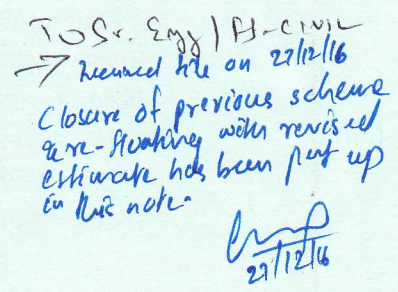 To Sr. Engg / PS-CIVIL
→ Received file on 27/12/16
Closure of previous scheme
& re-floating with revised
estimate has been put up
in this note.
27/12/16